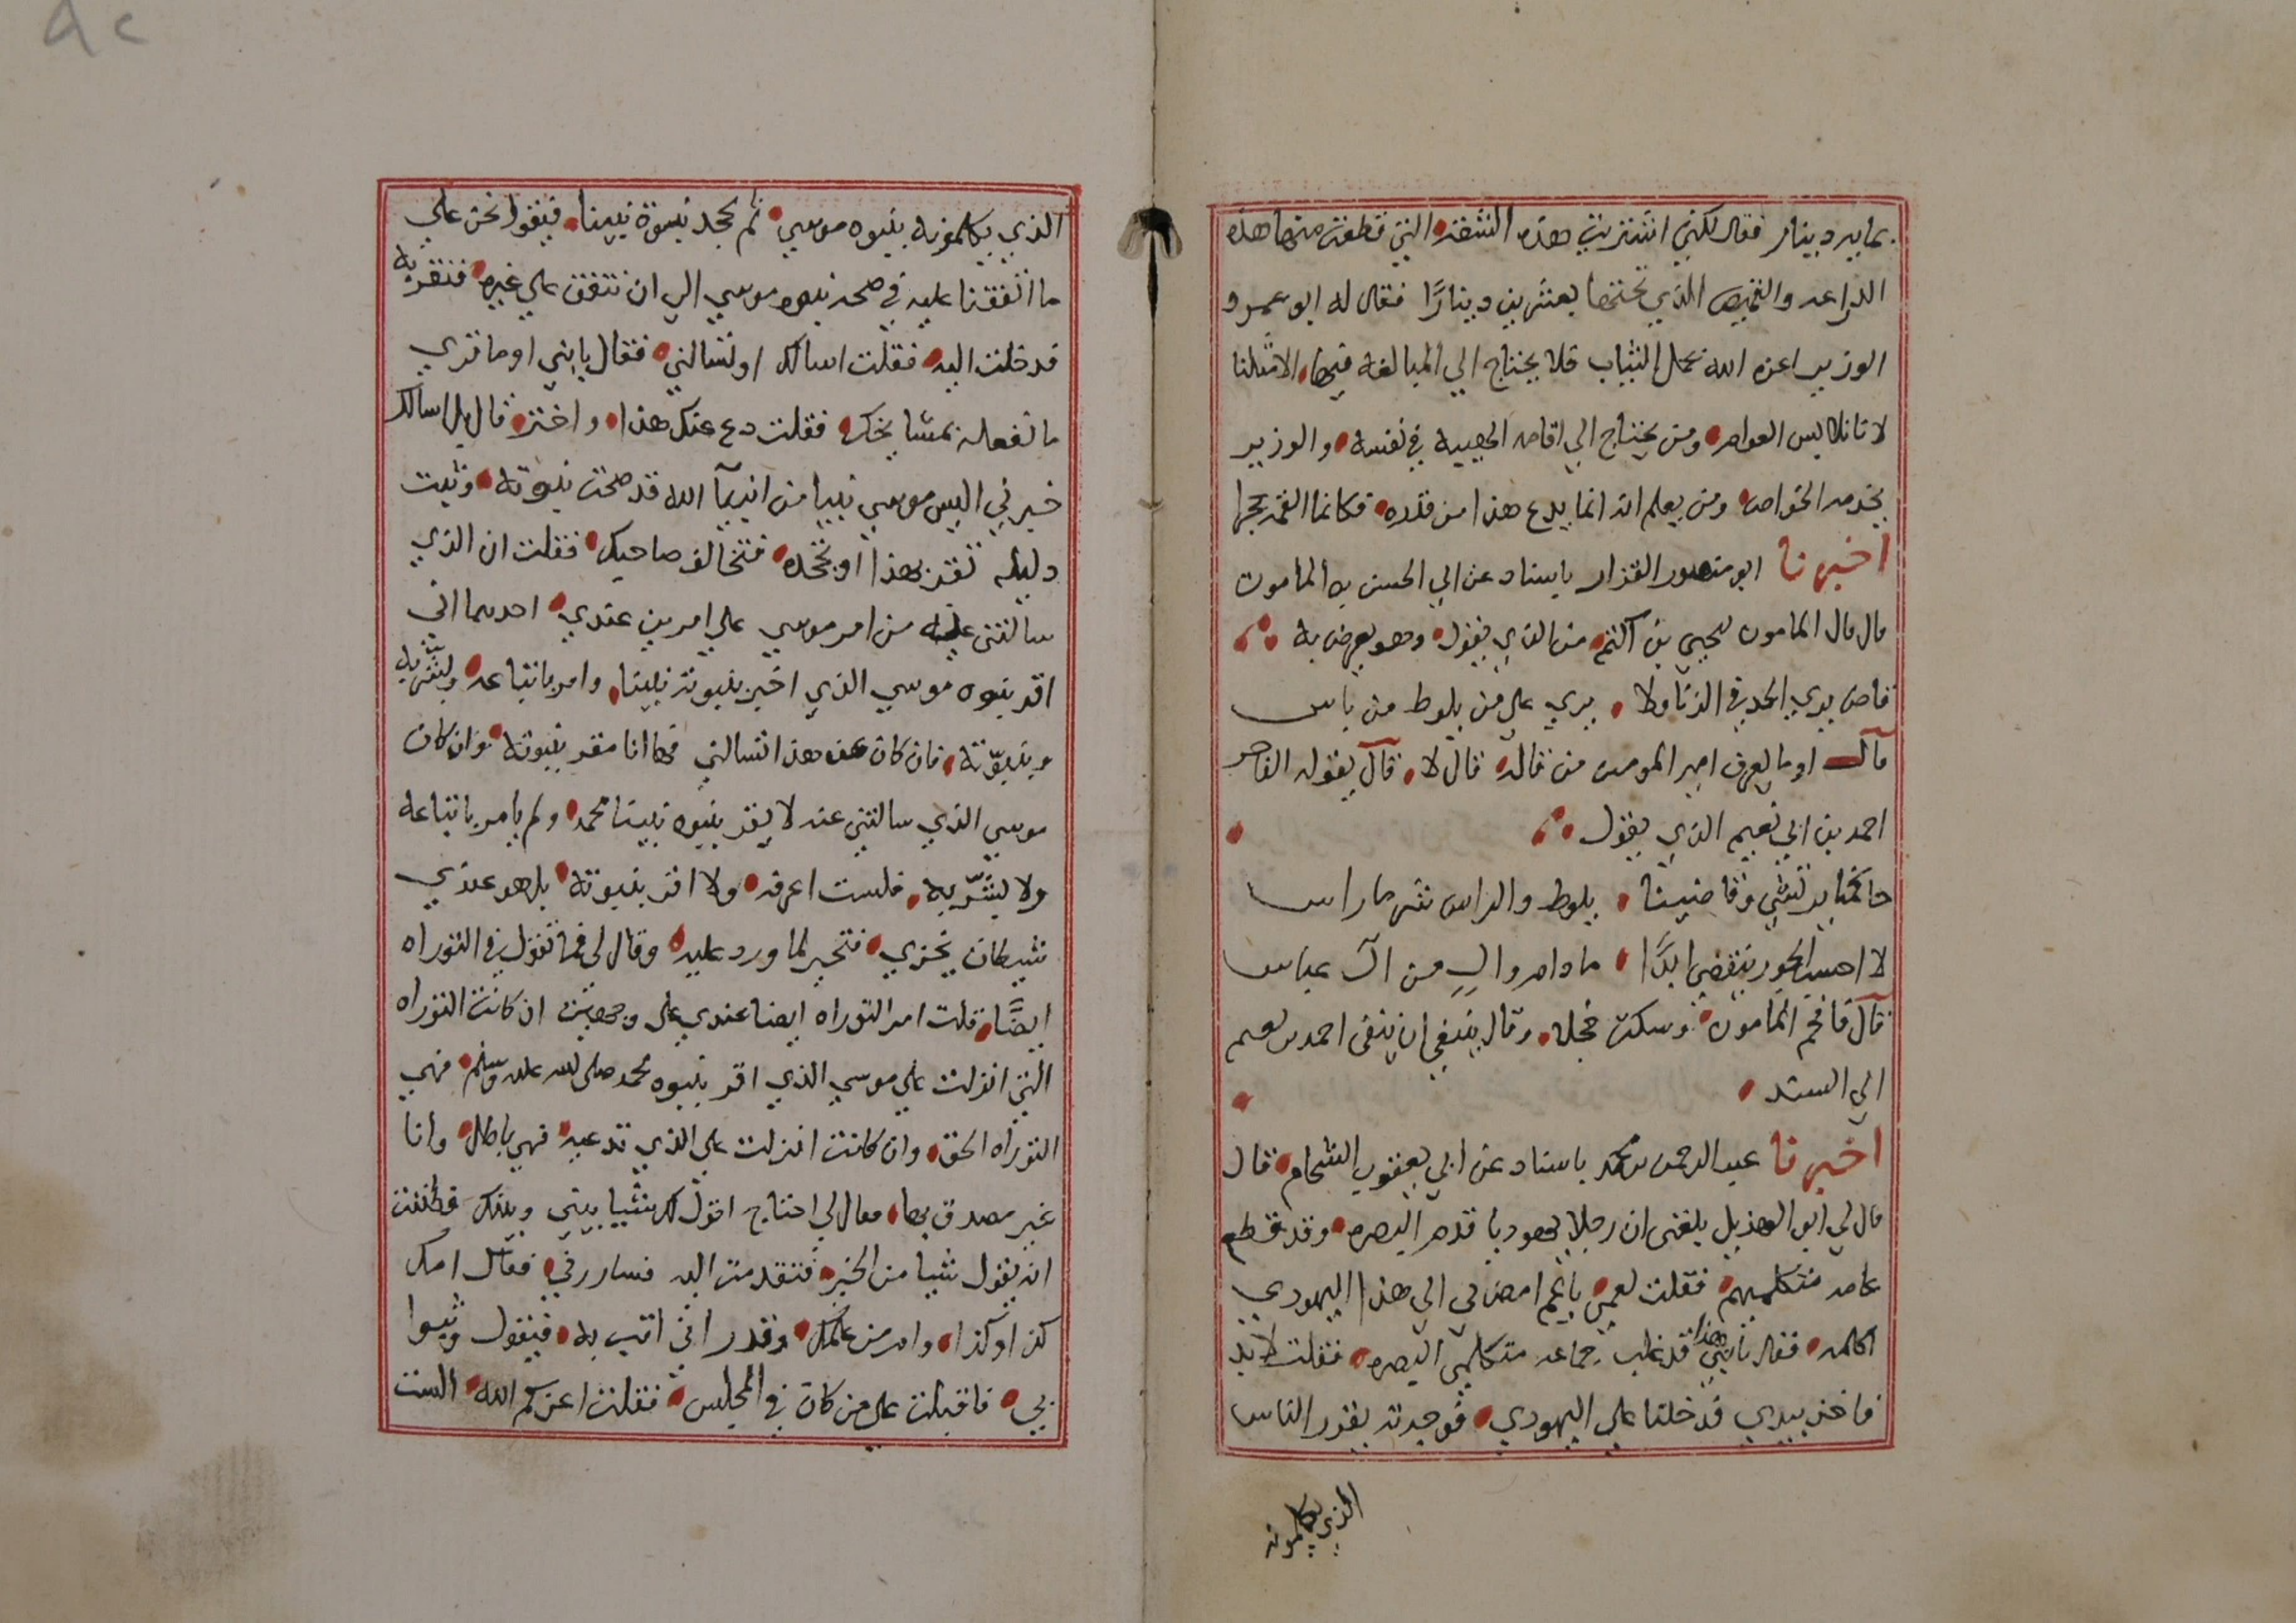 بمايه دينار فقال لكني اشتريت هذه الشقه التي قطعت منها هذه
الدراعه والقميص الذي تحتها بعشرين دينارًا فقال له ابو عمرو
الوزير اعزه الله يجمل الثياب فلا يحتاج الي المبالغه فيها الامثلنا
لاننا نلابس العوام ومن يحتاج الي اقامه الهيبه في نفسه والوزير
يخدمه الخواص ومن يعلم انه انما يدع هذا من قدره فكانما القمه حجرا
اخبرنا ابو منصور القزار باسناد عن ابي الحسن به المامون
قال قال المامون ليحيي بن اكثم من الذي يقول وهو يعرض به
قاض يري الحد في الزنا ولا يري علي من يلوط من باس
قال اوما يعرف امير المومنين من قاله قال لا قال يقوله الفاجر
احمد بن ابي نعيم الذي يقول
حاكمنا يرتشي وقاضينا يلوط والراس شر ما راس
لا احسب الجور ينقضي ابدًا ما دام والٍ من آل عباس
قال فافحم المامون وسكت خجلا وقال ينبغي ان ينفى احمد بن نعيم
الي السند
اخبرنا عبد الرحمن بن محمد باسناد عن ابي يعقوب الشحام قال
قال لي ابو الهذيل بلغني ان رجلا يهوديا قدم البصره وقد قطع
عامه متكلميهم فقلت لعمي ياعم امض بي الي هذا اليهودي
اكلمه فقال يابني هذا قد غلب جماعه متكلمي البصره فقلت لا بد
فاخذ بيدي فدخلنا علي اليهودي فوجدته يقرر الناس
الذي يكلمونه
الذي يكلمونه بنبوه موسي ثم يجحد نبوة نبينا فيقول نحن علي
ما اتفقنا عليه في صحه نبوه موسي الي ان نتفق علي غيره فنقر به
فدخلت اليه فقلت اسالك او تسالني فقال يابني اوما تري
ما افعله بمشايخك فقلت دع عنك هذا واختر قال بل اسالك
خبرني اليس موسي نبيا من انبيآ الله قد صحت نبوته وثبت
دليله تقر بهذا او تجحده فتخالف صاحبك فقلت ان الذي
سالتني عنه من امر موسي علي امرين عندي احدهما اني
اقر بنبوه موسي الذي اخبر بنبوته نبينا وامر باتباعه وبشر به
وبنبوّته فان كان عن هذا تسالني فها انا مقر بنبوته وان كان
موسي الذي سالتني عنه لا يقر بنبوه نبينا محمد ولم يامر باتباعه
ولا يبشّر به فلست اعرفه ولا اقر بنبوته بل هو عندي
شيطان يخزي فتحير لما ورد عليه وقال لي فما تقول في التوراه
ايضًا قلت امر التوراه ايضا عندي علي وجهين ان كانت التوراه
التي انزلت علي موسي الذي اقر بنبوه محمد صلى الله عليه وسلم فهي
التوراه الحق وان كانت انزلت علي الذي تدعيه فهي باطل وانا
غير مصدق بها فقال لي احتاج اقول لك شييا بيني وبينك فظننت
انه يقول شييا من الخير فتقدمت اليه فساررني فقال امك
كذا وكذا وام من علمك وقدر اني اثب به فيقول وثبوا
بي فاقبلت علي من كان في المجلس فقلت اعزكم الله الست